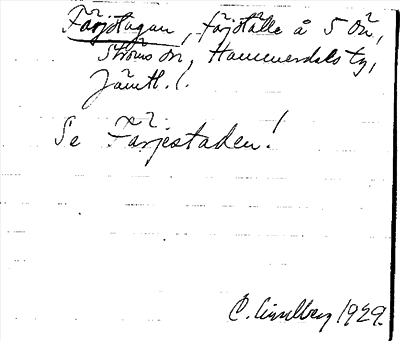 Färjstagan, färjställe å S ön,
Ströms sn, Hammerdals tg,
Jämtl. l.
Se Färjestaden!
C. Lindberg 1929.